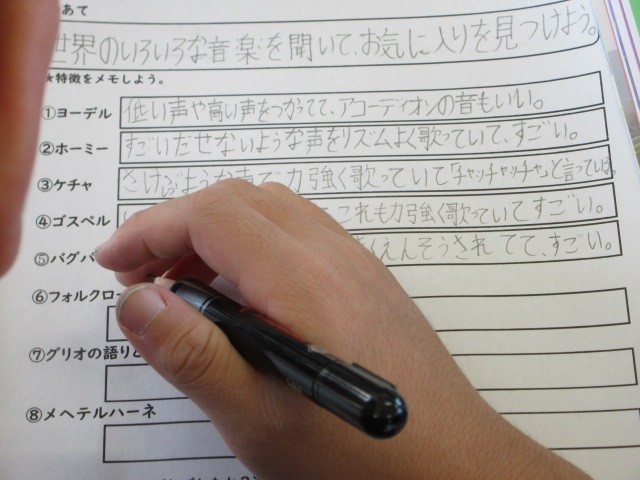 あて
世界のいろいろな音楽を聞いて、お気に入りを見つけよう。
★特徴をメモしよう。
①ヨーデル 低い声や高い声をつかってて、アコーディオンの音もいい。
②ホーミー すごいだせないような声をリズムよく歌っていて、すごい。
③ケチャ さけぶような声で力強く歌っていて「チャッチャッチャ」と言っている。
④ゴスペル これも力強く歌っていてすごい。
⑤バグパ えんそうされてて、すごい。
⑥フォルクロー
⑦グリオの語りと
⑧メヘテルハーネ